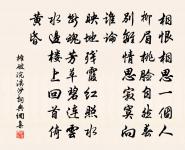 相恨相思一個人
柳眉桃臉自然春
別離情思寂寞向
誰論
映地殘霞紅照水
斷魂芳草碧連雲
水邊樓上回首倚
黃昏
攤破浣溪沙